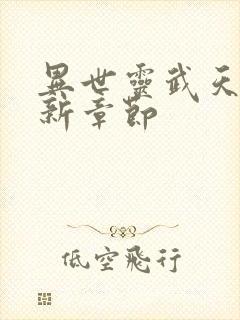 異世靈武天
新章節
低空飛行